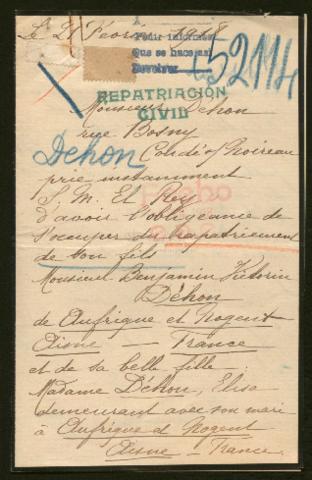 Le 21 Février 1918
Pedir informes
Que se haga
Devolver
52114
REPATRIACIÓN
CIVIL
Monsieur Dehon
rue Bosny
Dehon
Condé s/ Noireau
prie instamment
S. M. El Rey
d'avoir l'obligeance de
s'occuper du rapatriement
de son fils
Monsieur Benjamin Victorin
Déhon
de Aufrique et Nogent
Aisne — France
et de sa belle fille
Madame Déhon, Elise
demeurant avec son mari
à Aufrique et Nogent
Aisne — France